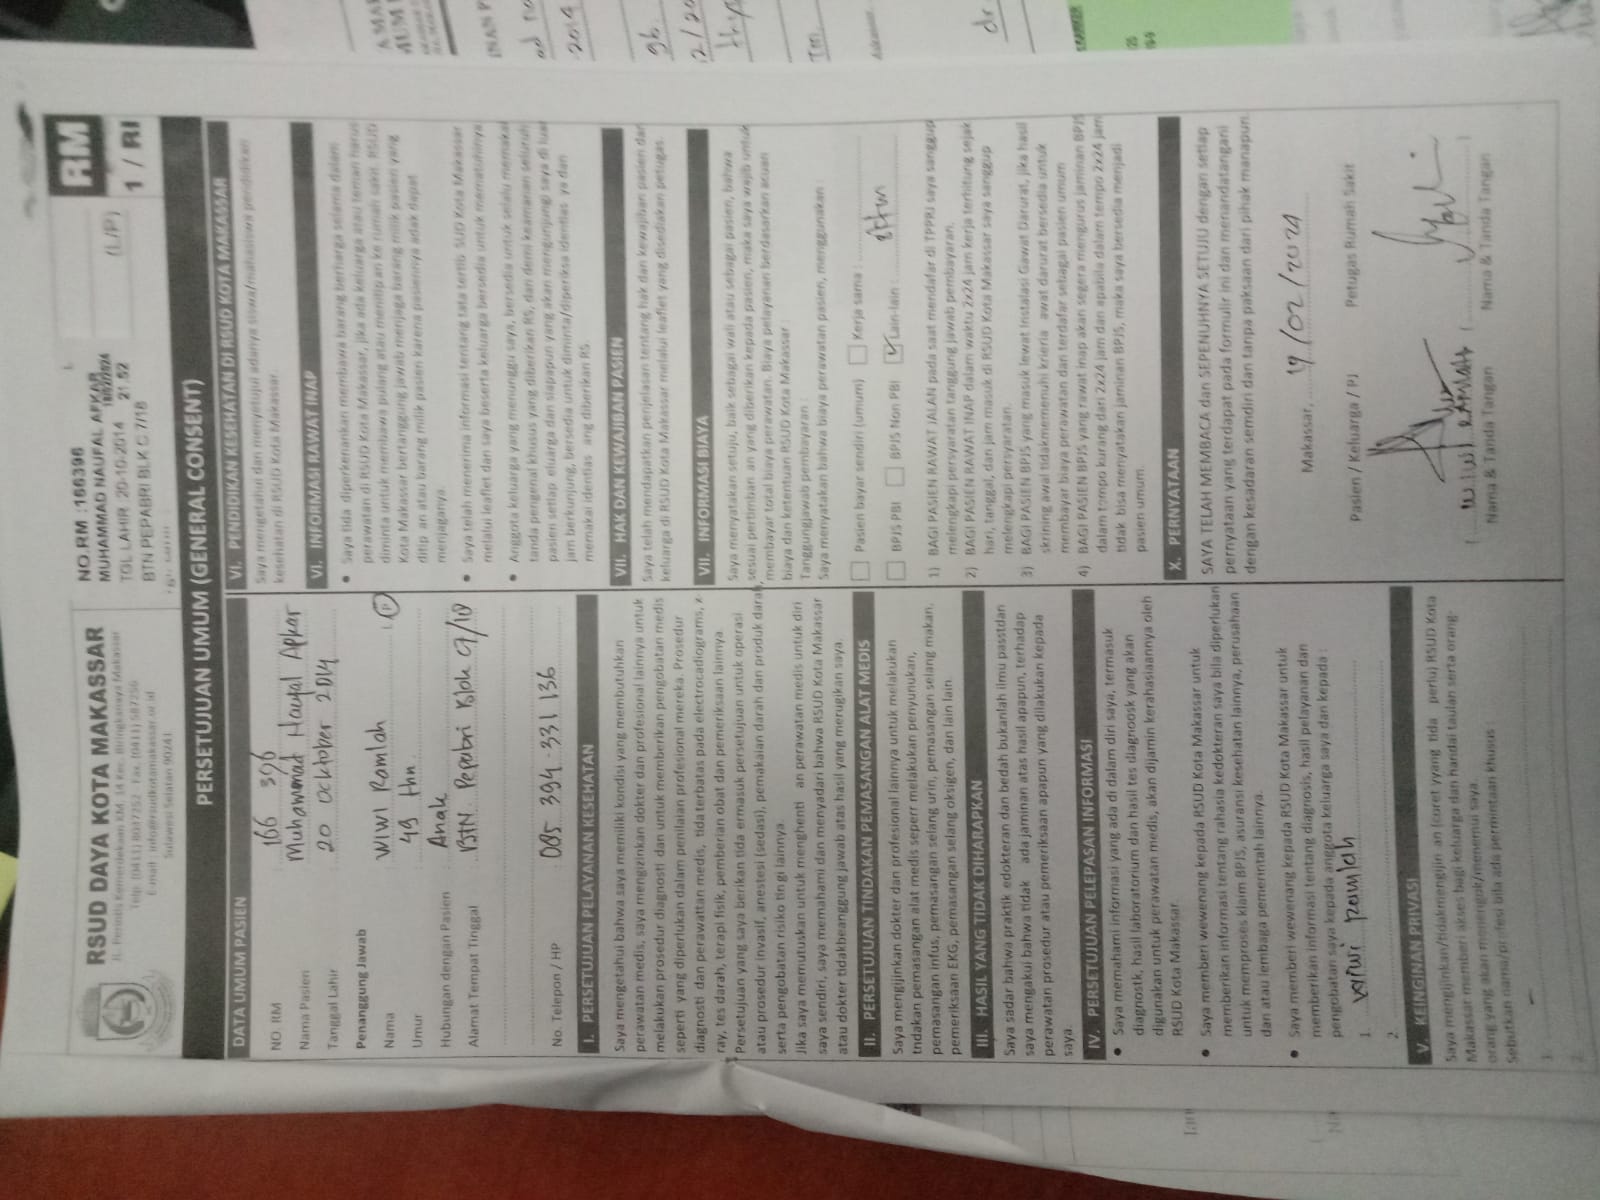 RSUD DAYA KOTA MAKASSAR
Jl. Perintis Kemerdekaan KM. 14 Kec. Biringkanaya Makassar
Sulawesi Selatan 90241
NO.RM :166396
MUHAMMAD NAUFAL AFKAR
TGL LAHIR 20-10-2014 21:52
BTN PEPABRI BLK C 7/18
(L/P)
RM
1 / RI
PERSETUJUAN UMUM (GENERAL CONSENT)
DATA UMUM PASIEN
NO. RM : 166 396
Nama Pasien : Muhammad Naufal Apkar
Tanggal Lahir : 20 Oktober 2014
Penanggung Jawab
Nama : WIWI Ramlah
Umur : 49 thn
Hubungan dengan Pasien : Anak
Alamat Tempat Tinggal : BTN. Pepabri Blok
No. Telepon / HP : 085 394 331 136
I. PERSETUJUAN PELAYANAN KESEHATAN
Saya mengetahui bahwa saya memiliki kondisi yang membutuhkan
perawatan medis, saya mengizinkan dokter dan profesional lainnya untuk
melakukan prosedur diagnosti dan untuk memberikan pengobatan medis
seperti yang diperlukan dalam penilaian profesional mereka. Prosedur
diagnosti dan perawattan medis, tida terbatas pada electrocardiograms, x
ray, tes darah, terapi fisik, pemberian obat dan pemeriksaan lainnya.
Persetujuan yang saya berikan tida ermasuk persetujuan untuk operasi
atau prosedur invasif, anestesi (sedasi), pemakaian darah dan produk darah,
serta pengobatan risiko tin gi lainnya.
Jika saya memutuskan untuk menghenti an perawatan medis untuk diri
saya sendiri, saya memahami dan menyadari bahwa RSUD Kota Makassar
atau dokter tidakbeanggung jawab atas hasil yang merugikan saya.
II. PERSETUJUAN TINDAKAN PEMASANGAN ALAT MEDIS
Saya mengijinkan dokter dan profesional lainnya untuk melakukan
tndakan pemasangan alat medis seperr melakukan penyunukan,
pemasangan infus, pemasangan selang urin, pemasangan selang makan,
pemeriksaan EKG, pemasangan selang oksigen, dan lain lain.
III. HASIL YANG TIDAK DIHARAPKAN
Saya sadar bahwa praktik edokteran dan bedah bukanlah ilmu passtdan
saya mengakui bahwa tidak ada jaminan atas hasil apapun, terhadap
perawatan prosedur atau pemeriksaan apapun yang dilakukan kepada
saya.
IV. PERSETUJUAN PELEPASAN INFORMASI
• Saya memahami informasi yang ada di dalam diri saya, termasuk
diagnostk, hasil laboratorium dan hasil tes diagnoosk yang akan
digunakan untuk perawatan medis, akan dijamin kerahasiaannya oleh
RSUD Kota Makassar.
• Saya memberi wewenang kepada RSUD Kota Makassar untuk
memberikan informasi tentang rahasia kedokteran saya bila diperlukan
untuk memproses klaim BPJS, asuransi kesehatan lainnya, perusahaan
dan atau lembaga pemerintah lainnya.
• Saya memberi wewenang kepada RSUD Kota Makassar untuk
memberikan informasi tentang diagnosis, hasil pelayanan dan
pengobatan saya kepada anggota keluarga saya dan kepada :
1. wiwi ramlah
2.
V. KEINGINAN PRIVASI
Saya mengijinkan/tidakmengijin an (coret yyang tida perlu) RSUD Kota
Makassar memberi akses bagi keluarga dan handai taulan serta orang-
orang yang akan menengok/menemui saya.
1.
2.
VI. PENDIDIKAN KESEHATAN DI RSUD KOTA MAKASSAR
Saya mengetahui dan menyetujui adanya siswa/mahasiswa pendidikan
kesehatan di RSUD Kota Makassar.
VI. INFORMASI RAWAT INAP
• Saya tida diperkenankan membawa barang berharga selama dalam
perawatan di RSUD Kota Makassar, jika ada keluarga atau teman harus
diminta untuk membawa pulang atau menitipan ke rumah sakit. RSUD
Kota Makassar bertanggung jawab menjaga barang milik pasien yang
ditip an atau barang milik pasien karena pasiennya adak dapat
menjaganya.
• Saya telah menerima informasi tentang tata tertib SUD Kota Makassar
melalui leaflet dan saya beserta keluarga bersedia untuk mematuhinya
• Anggota keluarga yang menunggu saya, bersedia untuk selalu memakai
tanda pengenal khusus yang diberikan RS, dan demi keamanan seluruh
pasien setiap eluarga dan siapapun yang akan mengunjungi saya di luar
jam berkunjung, bersedia untuk diminta/diperiksa identias ya dan
memakai identias ang diberikan RS
VII. HAK DAN KEWAJIBAN PASIEN
Saya telah mendapatkan penjelasan tentang hak dan kewajiban pasien dan
keluarga di RSUD Kota Makassar melalui leaflet yang disediakan petugas.
VII. INFORMASI BIAYA
Saya menyatakan setuju, baik sebagai wali atau sebagai pasien, bahwa
sesuai pertimban an yang diberikan kepada pasien, maka saya wajib untuk
membayar total biaya perawatan. Biaya pelayanan berdasarkan acuan
biaya dan ketentuan RSUD Kota Makassar :
Tanggungjawab pembayaran :
Saya menyatakan bahwa biaya perawatan pasien, menggunakan :
Pasien bayar sendiri (umum) Kerja sama :
BPJS PBI BPJS Non PBI Lain-lain :
1) BAGI PASIEN RAWAT JALAN pada saat mendafar di TPPRJ saya sanggup
melengkapi persyaratan tanggung jawab pembayaran.
2) BAGI PASIEN RAWAT INAP dalam waktu 2x24 jam kerja terhitung sejak
hari, tanggal, dan jam masuk di RSUD Kota Makassar saya sanggup
melengkapi persyaratan.
3) BAGI PASIEN BPJS yang masuk lewat Instalasi Gawat Darurat, jika hasil
skrining awal tidakmemenuhi krieria awat darurat bersedia untuk
membayar biaya perawatan dan terdaftar sebagai pasien umum
4) BAGI PASIEN BPJS yang rawat inap akan segera mengurus jaminan BPJS
dalam tempo kurang dari 2x24 jam dan apabila dalam tempo 2x24 jam
tidak bisa menyatakan jaminan BPJS, maka saya bersedia menjadi
pasien umum.
X. PERNYATAAN
SAYA TELAH MEMBACA dan SEPENUHNYA SETUJU dengan setiap
pernyataan yang terdapat pada formulir ini dan menandatangani
dengan kesadaran sendiri dan tanpa paksaan dari pihak manapun.
Makassar, 19/02/2024
Pasien / Keluarga / PJ Petugas Rumah Sakit
( wiwi ramlah ) ( )
Nama & Tanda Tangan Nama & Tanda Tangan